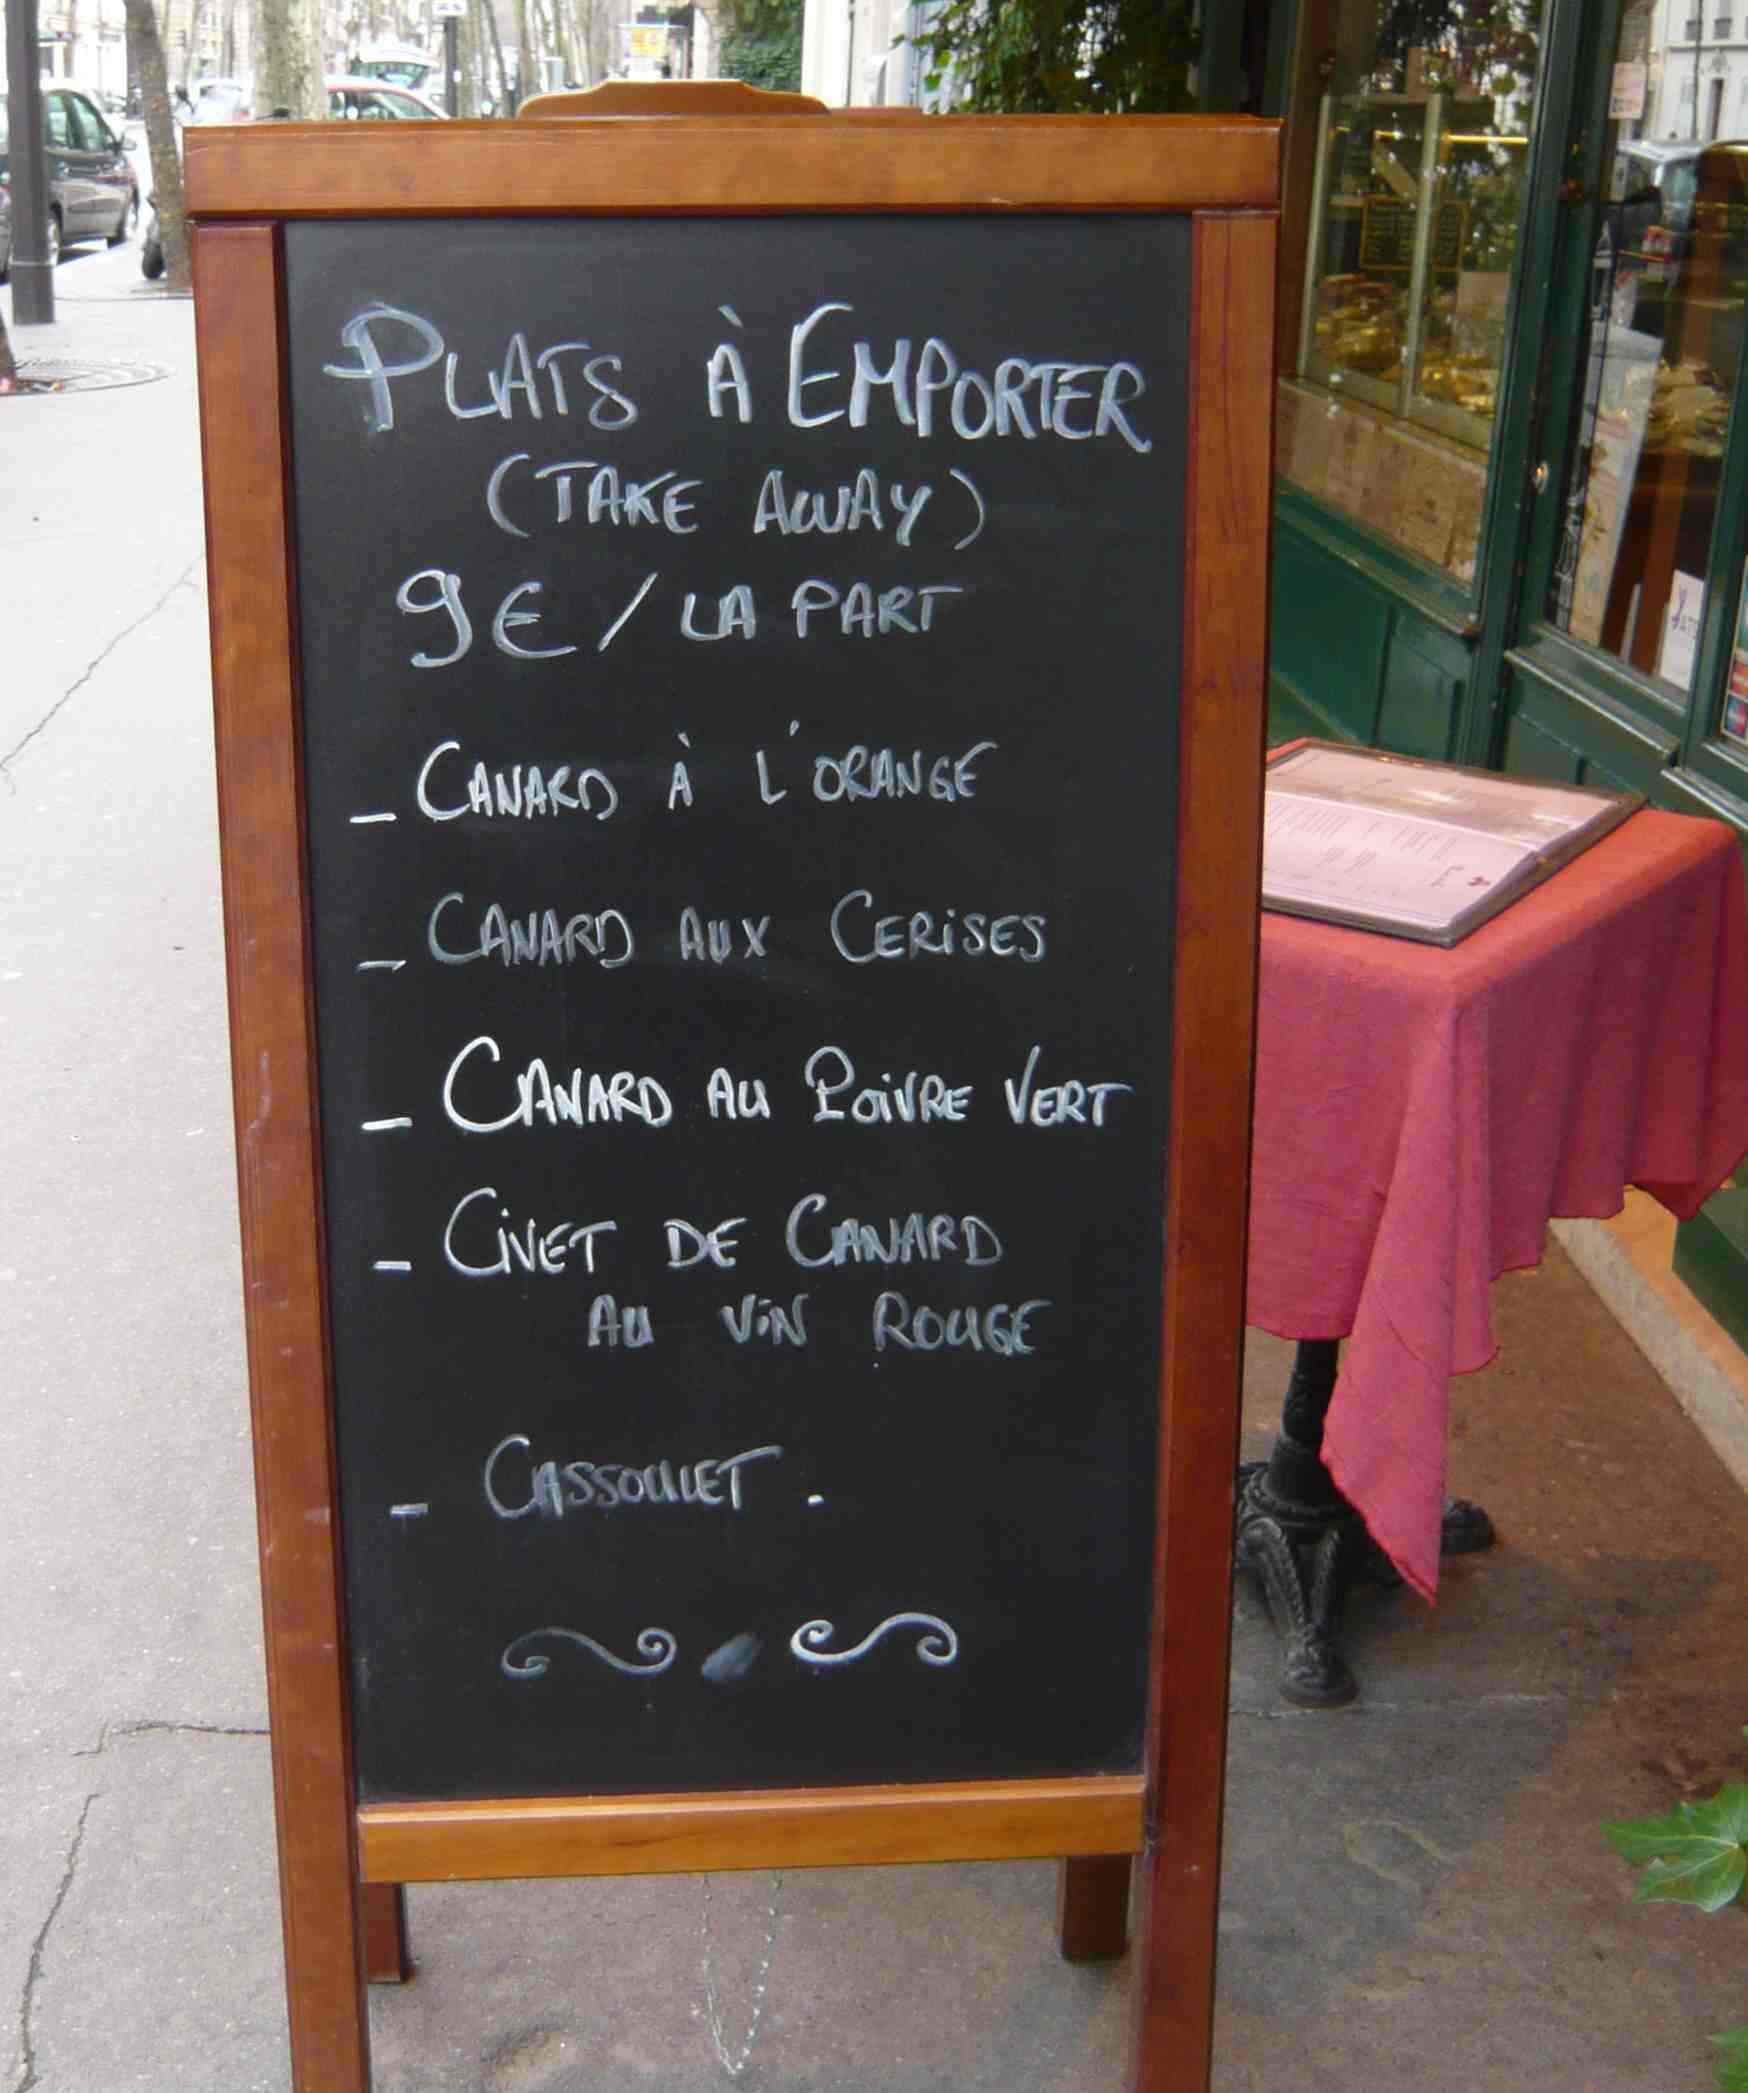 PLATS À EMPORTER
(TAKE AWAY)
9€ / LA PART
- CANARD À L'ORANGE
- CANARD AUX CERISES
- CANARD AU POIVRE VERT
- CIVET DE CANARD
AU VIN ROUGE
- CASSOULET.